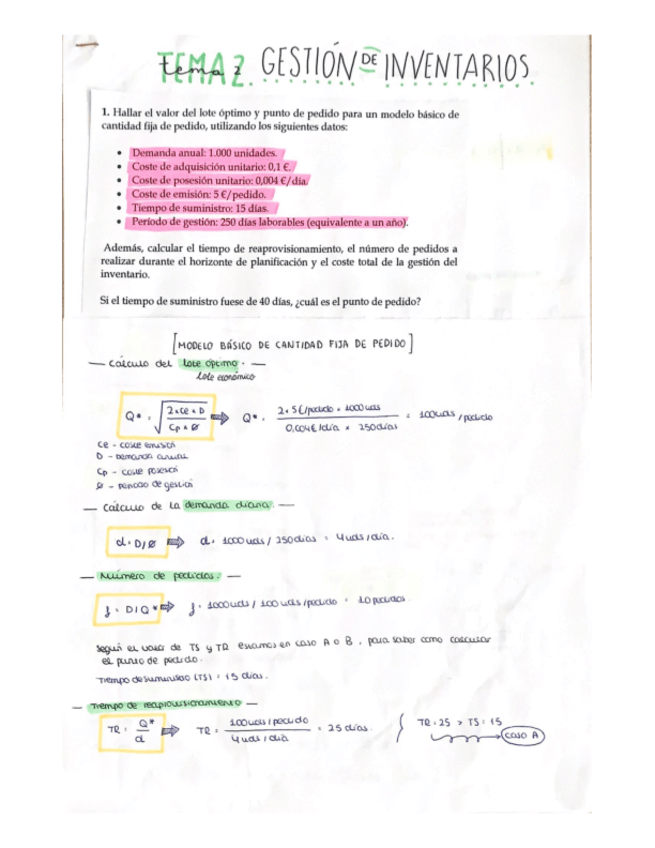 TEMA 2. GESTIÓN DE INVENTARIOS
tema 2
1. Hallar el valor del lote óptimo y punto de pedido para un modelo básico de
cantidad fija de pedido, utilizando los siguientes datos:
• Demanda anual: 1.000 unidades.
• Coste de adquisición unitario: 0,1 €.
• Coste de posesión unitario: 0,004 €/día.
• Coste de emisión: 5 €/pedido.
• Tiempo de suministro: 15 días.
• Período de gestión: 250 días laborables (equivalente a un año).
Además, calcular el tiempo de reaprovisionamiento, el número de pedidos a
realizar durante el horizonte de planificación y el coste total de la gestión del
inventario.
Si el tiempo de suministro fuese de 40 días, ¿cuál es el punto de pedido?
[MODELO BÁSICO DE CANTIDAD FIJA DE PEDIDO]
— Cálculo del lote óptimo. —
lote económico
Q* = √(2×Ce×D / Cp×Ø) ⇒ Q* = 2 × 5€/pedido × 1000uds / 0,004€/día × 250días = 100uds/pedido
Ce - coste emisión
D - Demanda anual
Cp - coste posesión
Ø - periodo de gestión
— Cálculo de la demanda diaria. —
d = D/Ø ⇒ d = 1000uds / 250días = 4uds/día.
— Número de pedidos. —
f = D/Q* ⇒ f = 1000uds / 100 uds/pedido = 10pedidos
Según el valor de TS y TR estamos en caso A o B, para saber como calcular
el punto de pedido.
Tiempo de suministro (TS) = 15 días.
— Tiempo de reaprovisionamiento —
TR = Q* / d ⇒ TR = 100uds/pedido / 4uds/día = 25 días. { TR=25 > TS=15
caso A